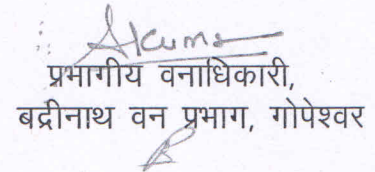 Akumar
प्रभागीय वनाधिकारी,
बद्रीनाथ वन प्रभाग, गोपेश्वर